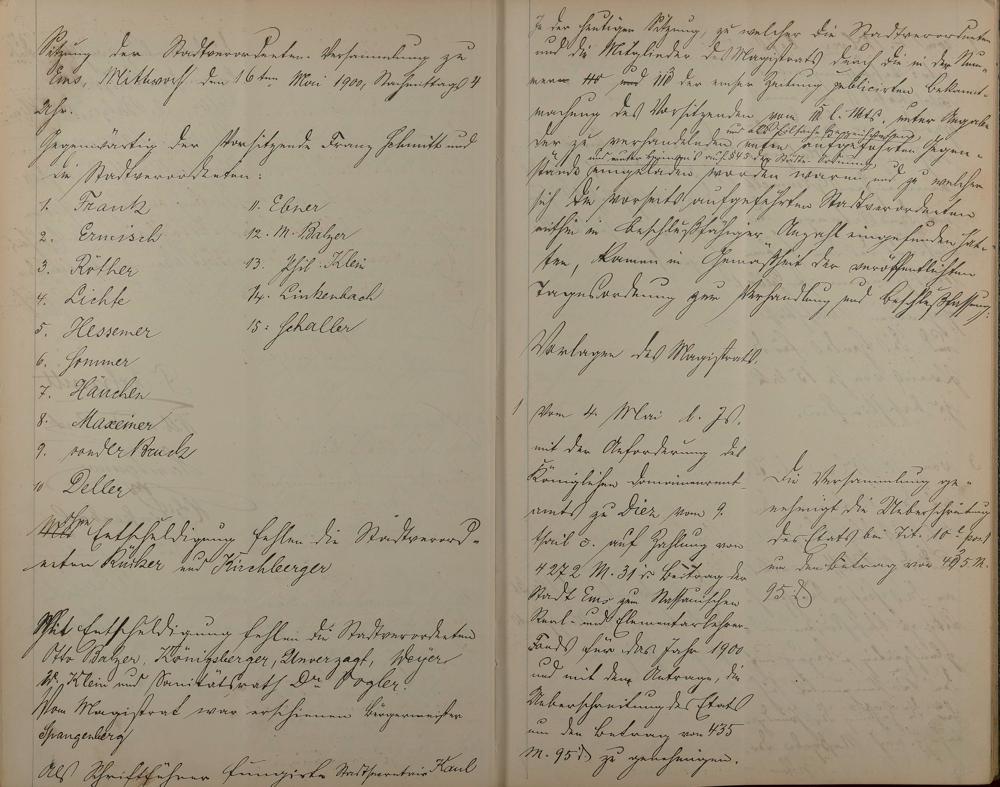 Sitzung der Stadtverordneten-Versammlung zu
Ems, Mittwoch den 16ten Mai 1900, Nachmittags 4
Uhr.
Gegenwärtig der Vorsitzende Franz Schmitt und
die Stadtverordneten:
1. Frank
2. Ermisch
3. Röther
4. Lichte
5. Hessemer
6. Sommer
7. Hänchen
8. Maxeiner
9. von der Bruck
10 Deller
11. Ebner
12. M. Balzer
13. Phil. Klein
14. Linkenbach
15. Schaller
Ohne Entschuldigung fehlen die Stadtverord-
neten Rücker und Kirchberger
Mit Entschuldigung fehlen die Stadtverordneten
Otto Balzer, Königsberger, Unverzagt, Weyer
W. Klein und Sanitätsrath Dr. Vogler.
Vom Magistrat war erschienen Bürgermeister
Spangenberg
Als Schriftführer fungirte Stadtsecretair Kaul
In der heutigen Sitzung, zu welcher die Stadtverordneten
und die Mitglieder des Magistrats durch die in der Num-
mer der Emser Zeitung publicirten Bekannt-
machung des Vorsitzenden vom l. Mts. unter Angabe
der zu verhandelnden unten aufgeführten Gegen-
und unter Hinweis auf § 45 der Städte-Ordnung
stände eingeladen worden waren und zu welcher
sich die vorseits aufgeführten Stadtverordneten
mithin in beschlußfähiger Anzahl eingefunden hat-
ten, kamen in Gemäßheit der veröffentlichten
Tagesordnung zur Verhandlung und Beschlußfassung:
Vorlagen des Magistrats
1 Vom 4. Mai l. Js.
mit der Anforderung des
Königlichen Domainenrent-
amts zu Diez vom 9.
auf Zahlung von
4272 M. 31 d Beitrag der
Stadt Ems zum Nassauischen
Real- und Elementarlehrer-
Fonds für das Jahr 1900
und mit dem Antrage, die
Ueberschreitung des Etats
um den Betrag von 435
M. 95 d zu genehmigen.
Die Versammlung ge-
nehmigt die Ueberschreitung
des Etats bei Tit. 10
um den Betrag von 435 M.
95 d.